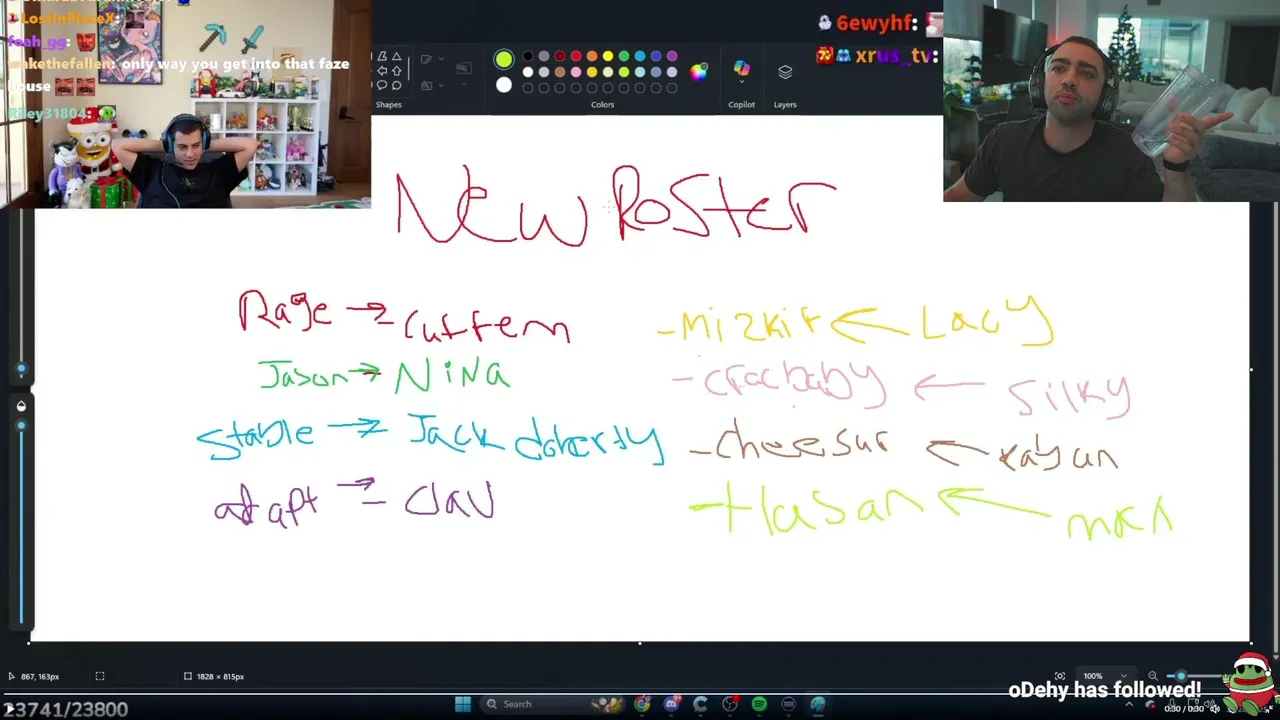 LostInPlaceX:
foah_gg:
wakethefallen: only way you get into that faze
house
Riley31804:
6ewyhf:
xrus_tv:
Shapes
Colors
Copilot
Layers
New Roster
Rage → Cuffem
Jason → Nina
Stable → Jack doherty
adapt → Clav
- Mizkif ← Lacy
- cracbaby ← Silky
- Cheesur ← Kaysan
- Hasan ← max
867, 163px
1828 × 815px
100%
oDehy has followed!
23741/23800
Search
0:30 / 0:30